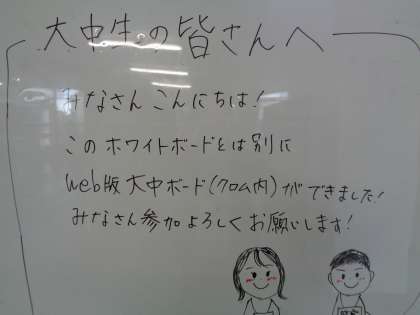 大中生の皆さんへ
みなさんこんにちは!
このホワイトボードとは別に
web版大中ボード(クロム内)ができました!
みなさん参加よろしくお願いします!